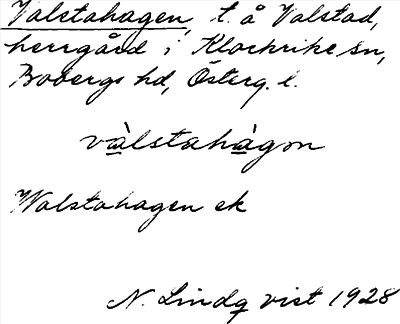 Valstahagen, t. å Valstad,
herrgård i Klockrike sn,
Bobergs hd, Österg. l.
và̲lstahà̲gon
Walstahagen ek
N. Lindqvist 1928